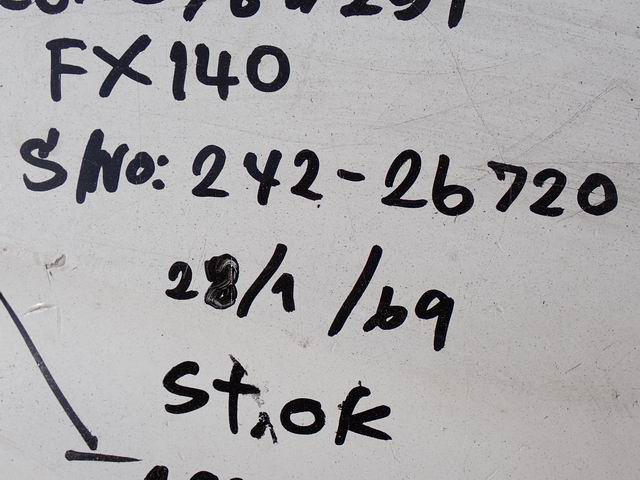 FX140
S/No: 242-26720
28/1/69
St,OK